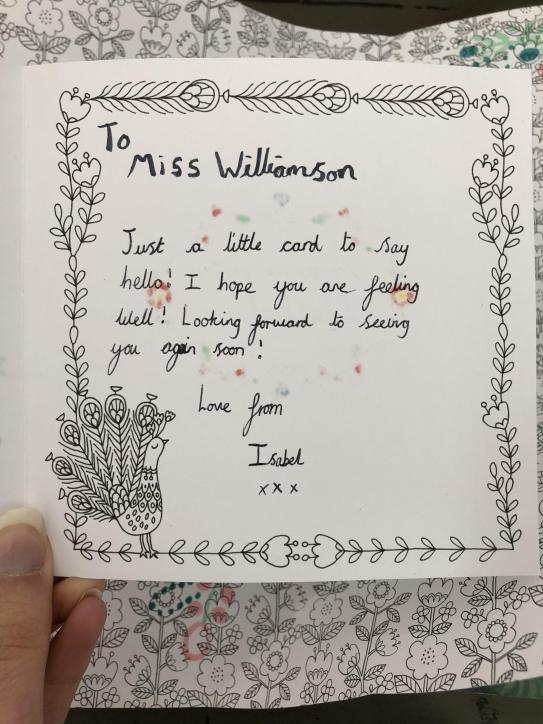 To
Miss Williamson
Just a little card to say
hello! I hope you are feeling
well! Looking forward to seeing
you again soon!
Love from
Isabel
x x x